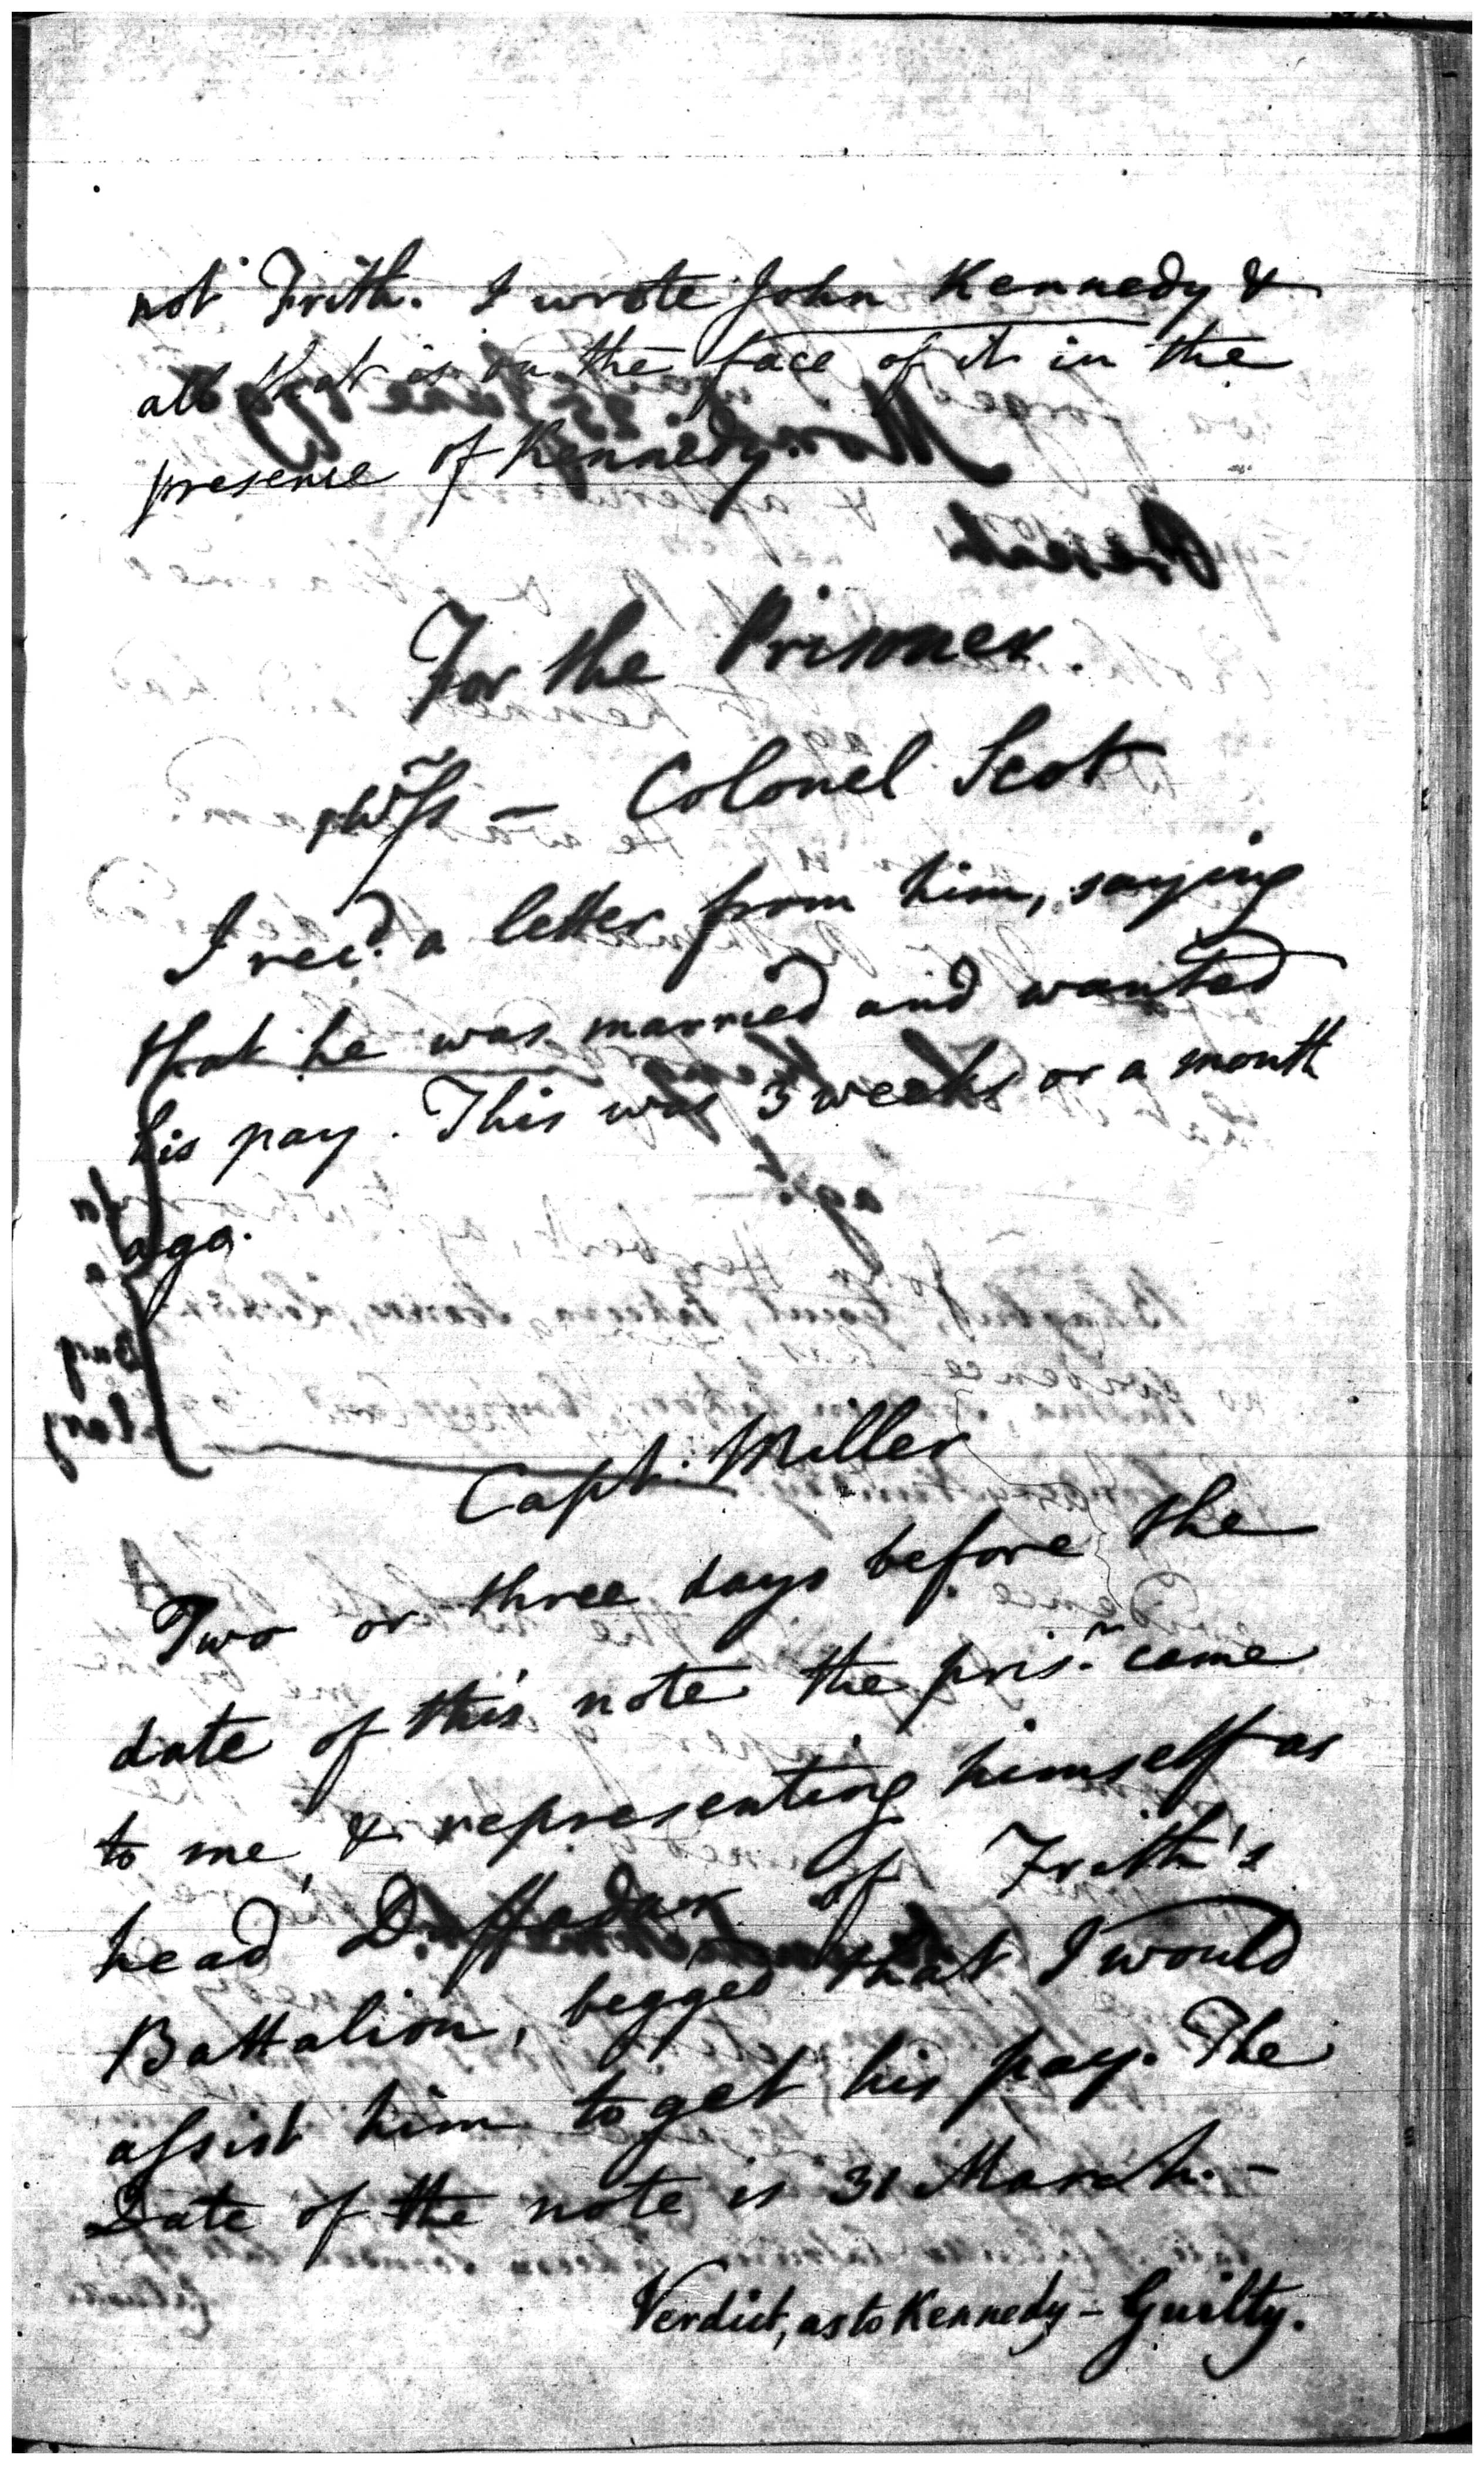 not Frith. I wrote John Kennedy &
all that is on the face of it in the
presence of Kennedy.
For the Prisoner.
Colonel Scot
I rec.d a letter from him, saying
that he was married and wanted
his pay. This was 3 weeks or a month
ago.
Capt. Miller
Two or three days before the
date of this note the pris.r came
to me & representing himself as
head Duffadar of Frith's
Battalion, begged that I would
assist him to get his pay. The
Date of the note is 31 March. -
Verdict, as to Kennedy - Guilty.